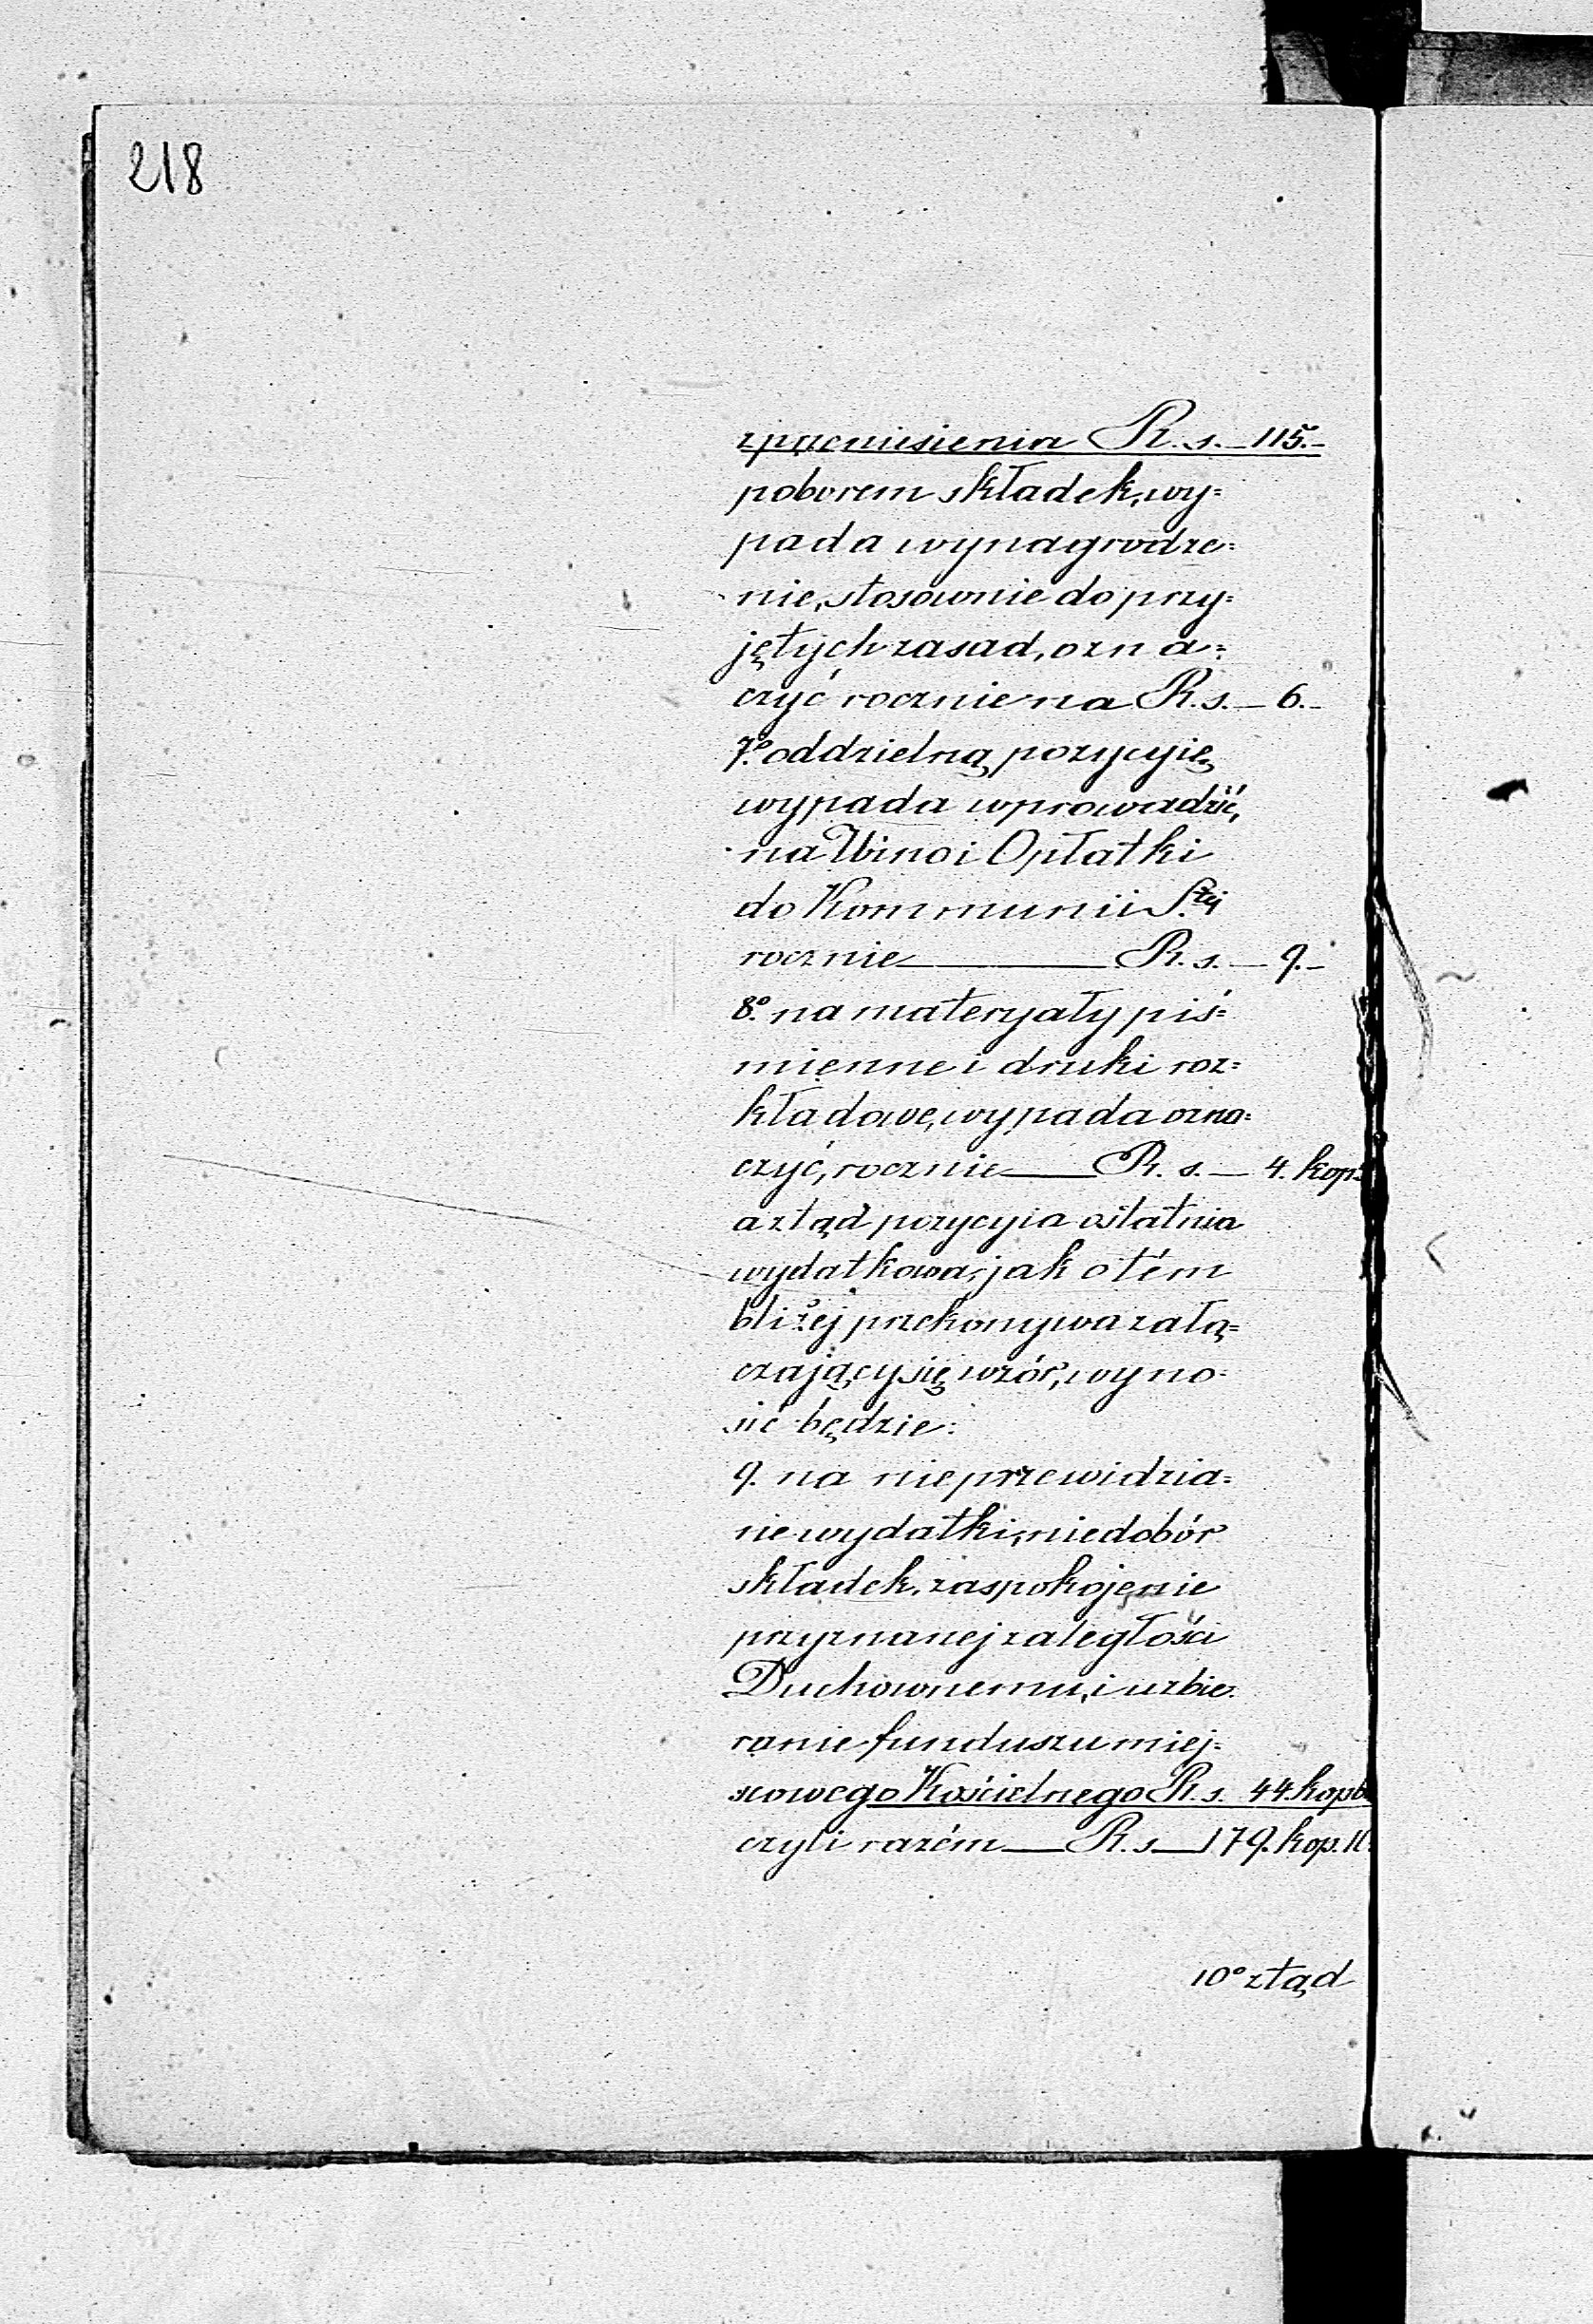 218
z przeniesienia R. s. — 115. —
poborem składek, wy=
pada wynagrodze=
nie, stosownie do przy=
jętych zasad, ozna=
czyć rocznie na R. s. — 6. —
7.o oddzielną pozycyię
wypada wprowadzić,
na Wino i Opłatki
do Kommunii S.tej
rocznie ——— R. s. — 9. —
8.o na materyały piś=
mienne i druki roz=
kładowe, wypada ozna=
czyć, rocznie — R. s. — 4. kop.
a ztąd pozycyia ostatnia
wydatkowa, jak o tém
bliżej przekonywa załą=
czający się wzór, wyno=
sić będzie:
9. na nieprzewidzia=
ne wydatki, niedobór
składek, zaspokojenie
przyznanej zaległości
Duchownemu, i uzbie=
ranie funduszu miej=
scowego Kościelnego R. s. 44. kop
czyli razém — R. s. — 179. kop. 11.
10o ztąd